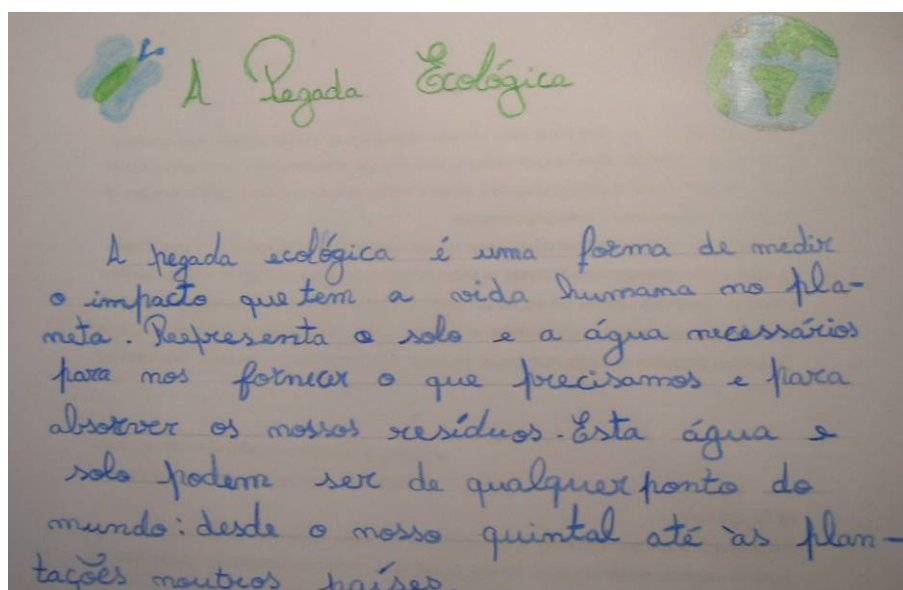 A Pegada Ecológica
A pegada ecológica é uma forma de medir
o impacto que tem a vida humana no pla-
neta. Reepresenta o solo e a água necessários
para nos fornecer o que precisamos e para
absorver os nossos resíduos. Esta água e
solo podem ser de qualquer ponto do
mundo: desde o nosso quintal até às plan-
tações noutros países.